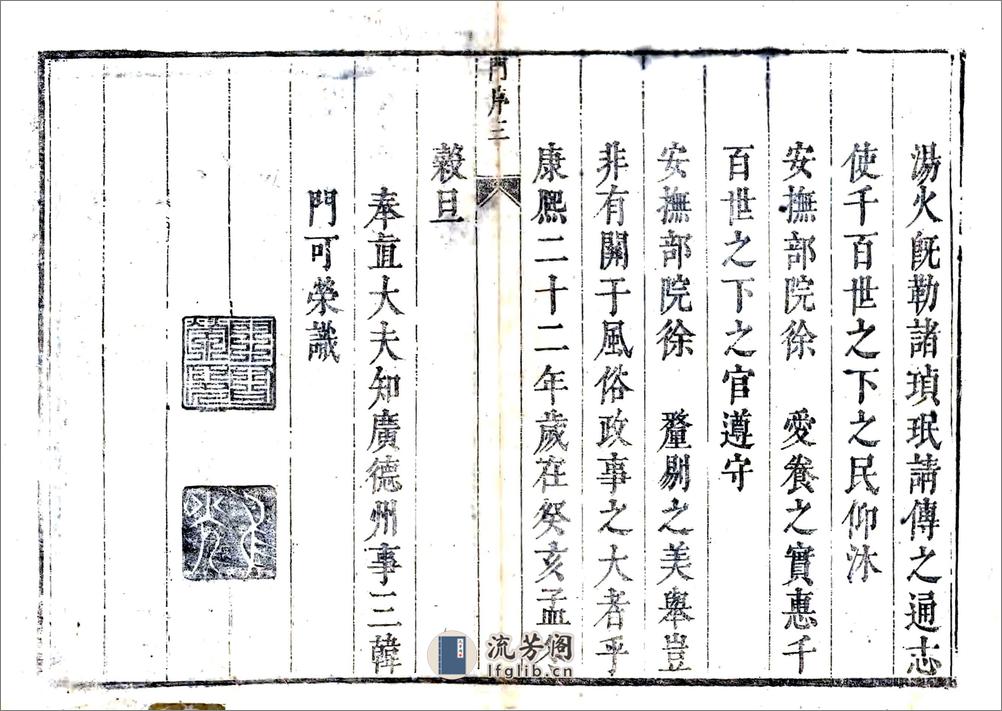 湯火既勒諸瑱珉請傳之通志
使千百世之下之民仰沐
安撫部院徐　愛養之實惠千
百世之下之官遵守
安撫部院徐　釐剔之美舉豈
非有關于風俗政事之大者乎
康熙二十二年歲在癸亥孟
門序三
穀旦
奉直大夫知廣德州事三韓
門可榮識
流芳阁
lfglib.cn